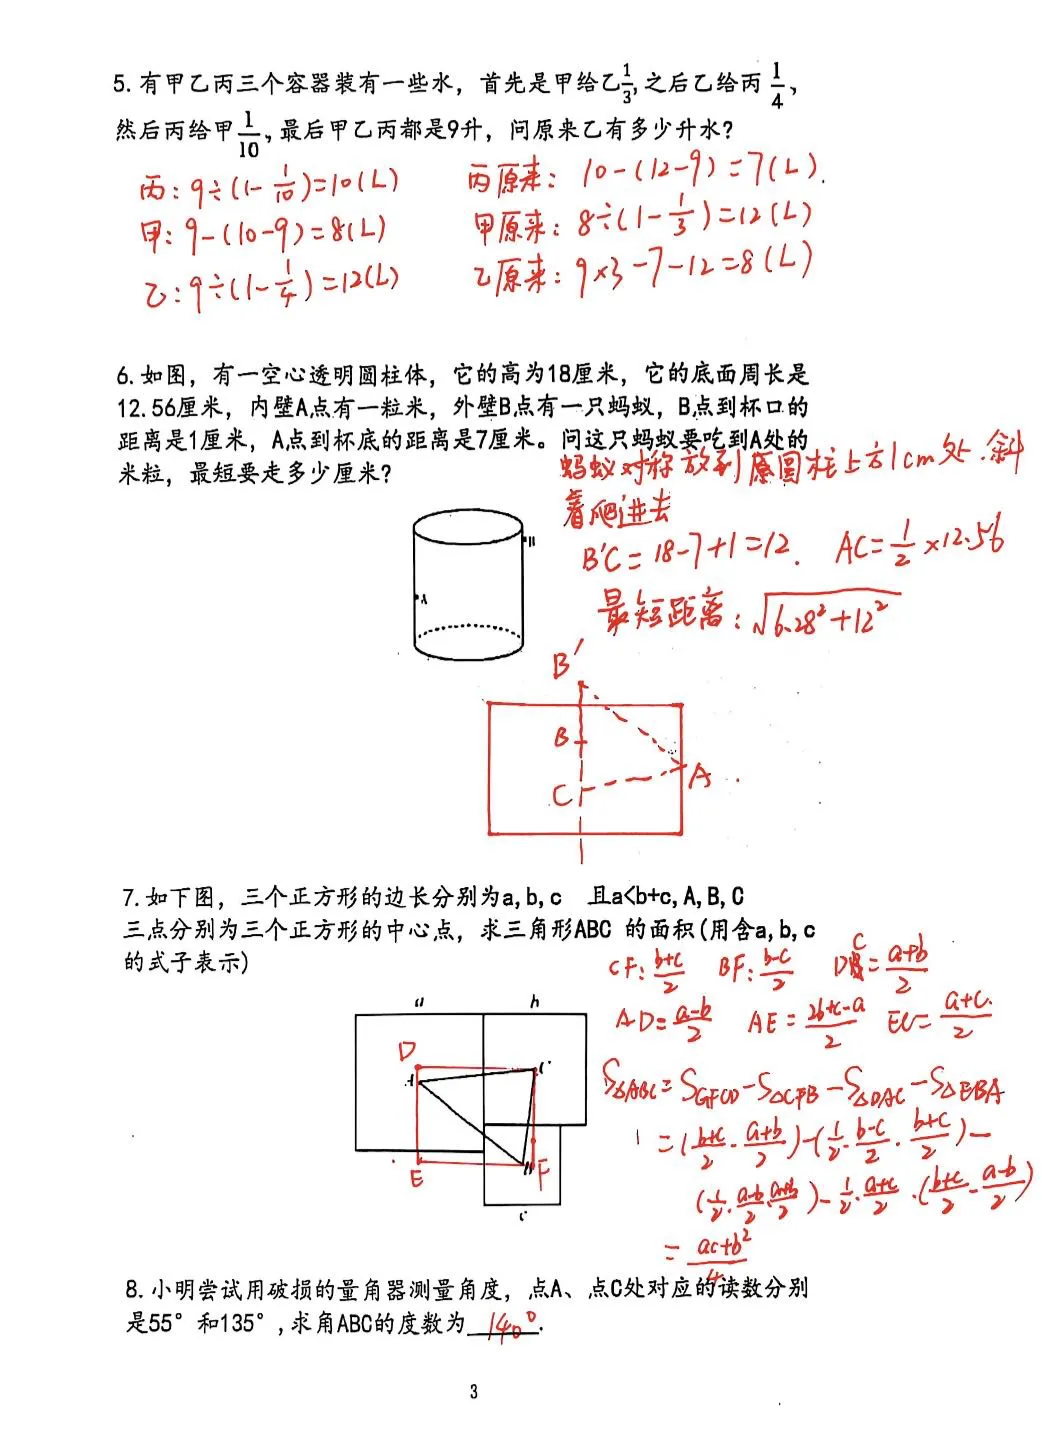 5. 有甲乙丙三个容器装有一些水，首先是甲给乙1/3,之后乙给丙 1/4、
然后丙给甲1/10、最后甲乙丙都是9升，问原来乙有多少升水?
丙: 9÷(1-1/10)=10(L)
丙原来: 10-(12-9)=7(L).
甲: 9-(10-9)=8(L)
甲原来: 8÷(1-1/3)=12(L)
乙: 9÷(1-1/4)=12(L)
乙原来: 9×3-7-12=8(L)
6. 如图，有一空心透明圆柱体，它的高为18厘米，它的底面周长是
12.56厘米，内壁A点有一粒米，外壁B点有一只蚂蚁，B点到杯口的
距离是1厘米，A点到杯底的距离是7厘米。问这只蚂蚁要吃到A处的
米粒，最短要走多少厘米?
蚂蚁对称放到原圆柱上方1cm处.斜
着爬进去
B'C=18-7+1=12. AC=1/2×12.56
最短距离: √(6.28²+12²)
B
A
B'
B
C
A
7. 如下图，三个正方形的边长分别为a,b,c 且a<b+c,A,B,C
三点分别为三个正方形的中心点，求三角形ABC 的面积(用含a,b,c
的式子表示)
CF: (b+c)/2 BF: (b-c)/2 DC=(a+b)/2
AD=(a-b)/2 AE=(2b+c-a)/2 EC=(a+c)/2
a
b
D
A
C
E
B
F
c
S△ABC=SGFCD-S△CFB-S△DAC-S△EBA
=((b+c)/2·(a+b)/2)-(1/2·(b-c)/2·(b+c)/2)-
(1/2·(a-b)/2·(a+b)/2)-1/2·(a+c)/2·((b+c)/2-(a-b)/2)
=(ac+b²)/4
8. 小明尝试用破损的量角器测量角度，点A、点C处对应的读数分别
是55° 和135°,求角ABC的度数为 140° .
3